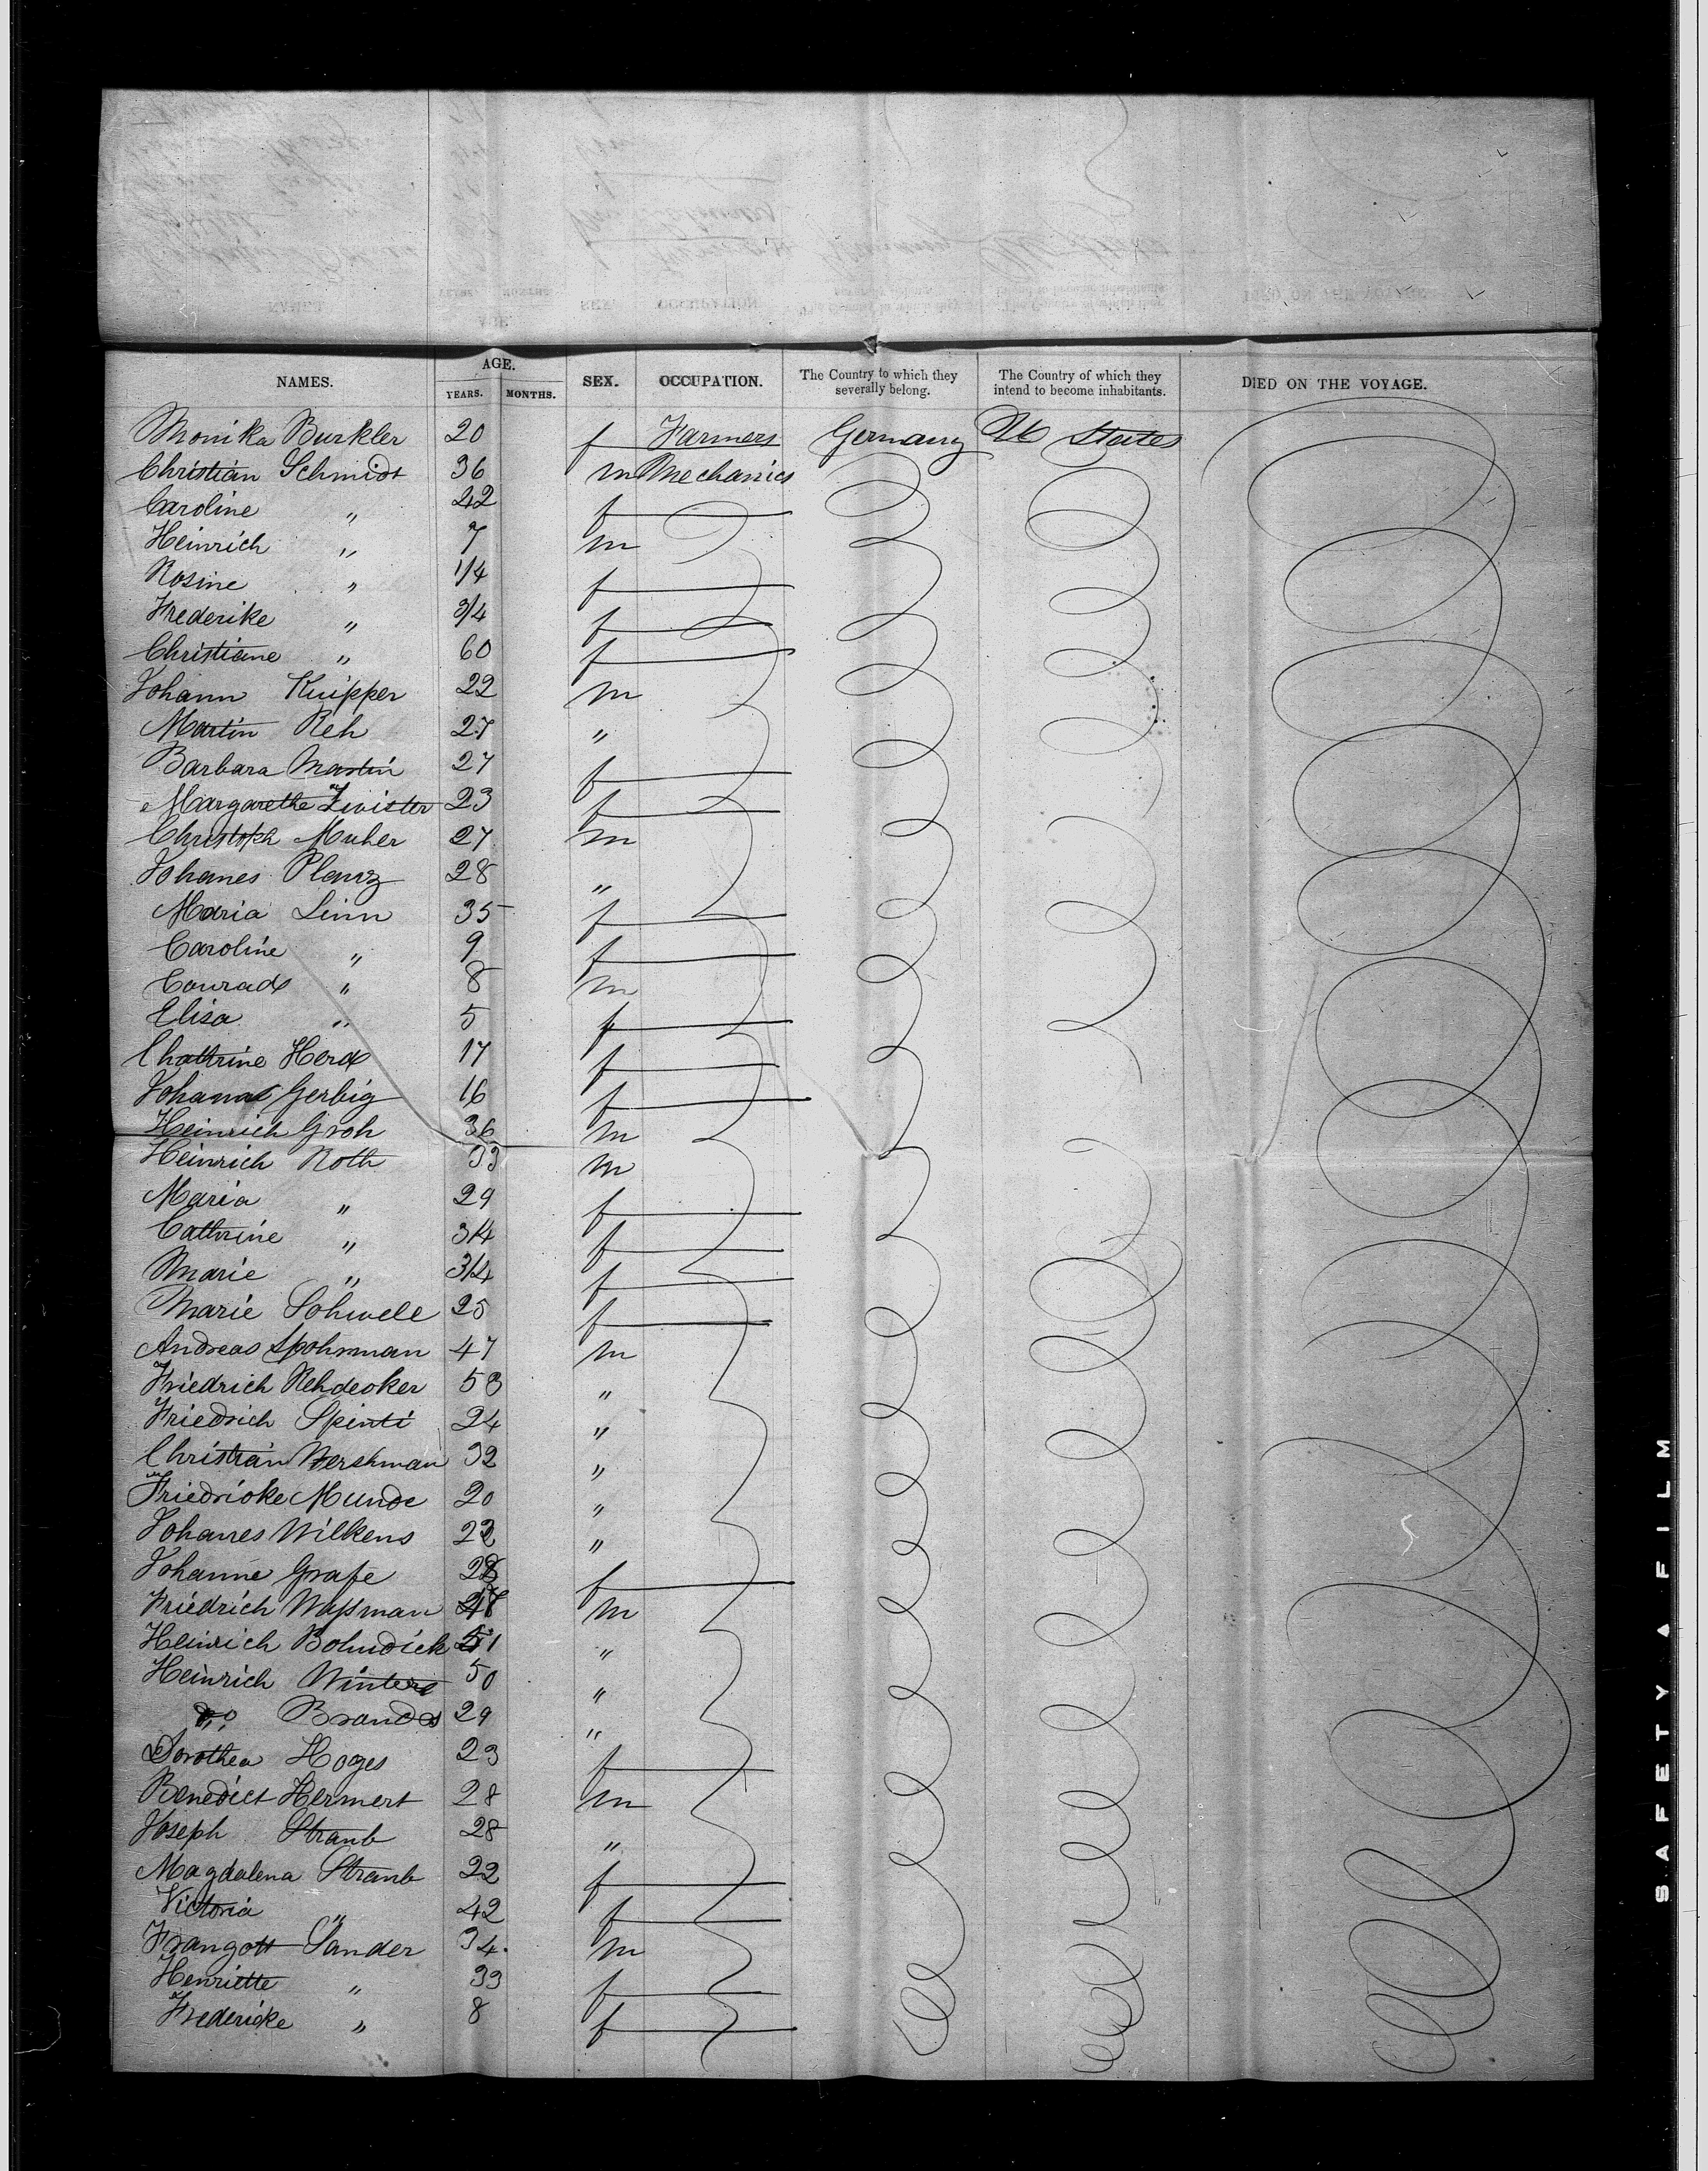 AGE.
NAMES. YEARS. MONTHS. SEX. OCCUPATION. The Country to which they severally belong. The Country of which they intend to become inhabitants. DIED ON THE VOYAGE.
Monika Burkler 20 f Farmers Germany Ut States
Christian Schmidt 36 m Mechanics
Caroline " 42 f
Heinrich " 7 m
Rosine " 1/4 f
Frederike " 3/4 f
Christiane " 60 f
Johann Kuipper 22 m
Martin Reh 27 "
Barbara Martin 27 f
Margarethe Zwister 23 f
Christoph Muher 27 m
Johanes Planz 28 "
Maria Linn 35 f
Caroline " 9 f
Conrad " 8 m
Elisa " 5 f
Chattrine Herd 17 f
Johana Gerbig 16 f
Heinrich Groh 36 m
Heinrich Roth 33 m
Maria " 29 f
Cathrine " 3/4 f
Marie " 3/4 f
Marie Sohwele 25 f
Andreas Spohrman 47 m
Friedrich Rehdecker 53 "
Friedrich Spinti 24 "
Christian Wershman 32 "
Friedricke Munde 20 "
Johannes Wilkens 22 "
Johanne Grafe f
Friedrich Wassman m
Heinrich Bohndick 51 "
Heinrich Winters 50 "
do Brandes 29 "
Dorothea Hoges 23 f
Benedict Hermert 28 m
Joseph Straub 28 "
Magdalena Straub 22 f
Victoria " 42 f
Frangott Sander 34. m
Henriette " 33 f
Fredericke " 8 f
SAFETY A FILM